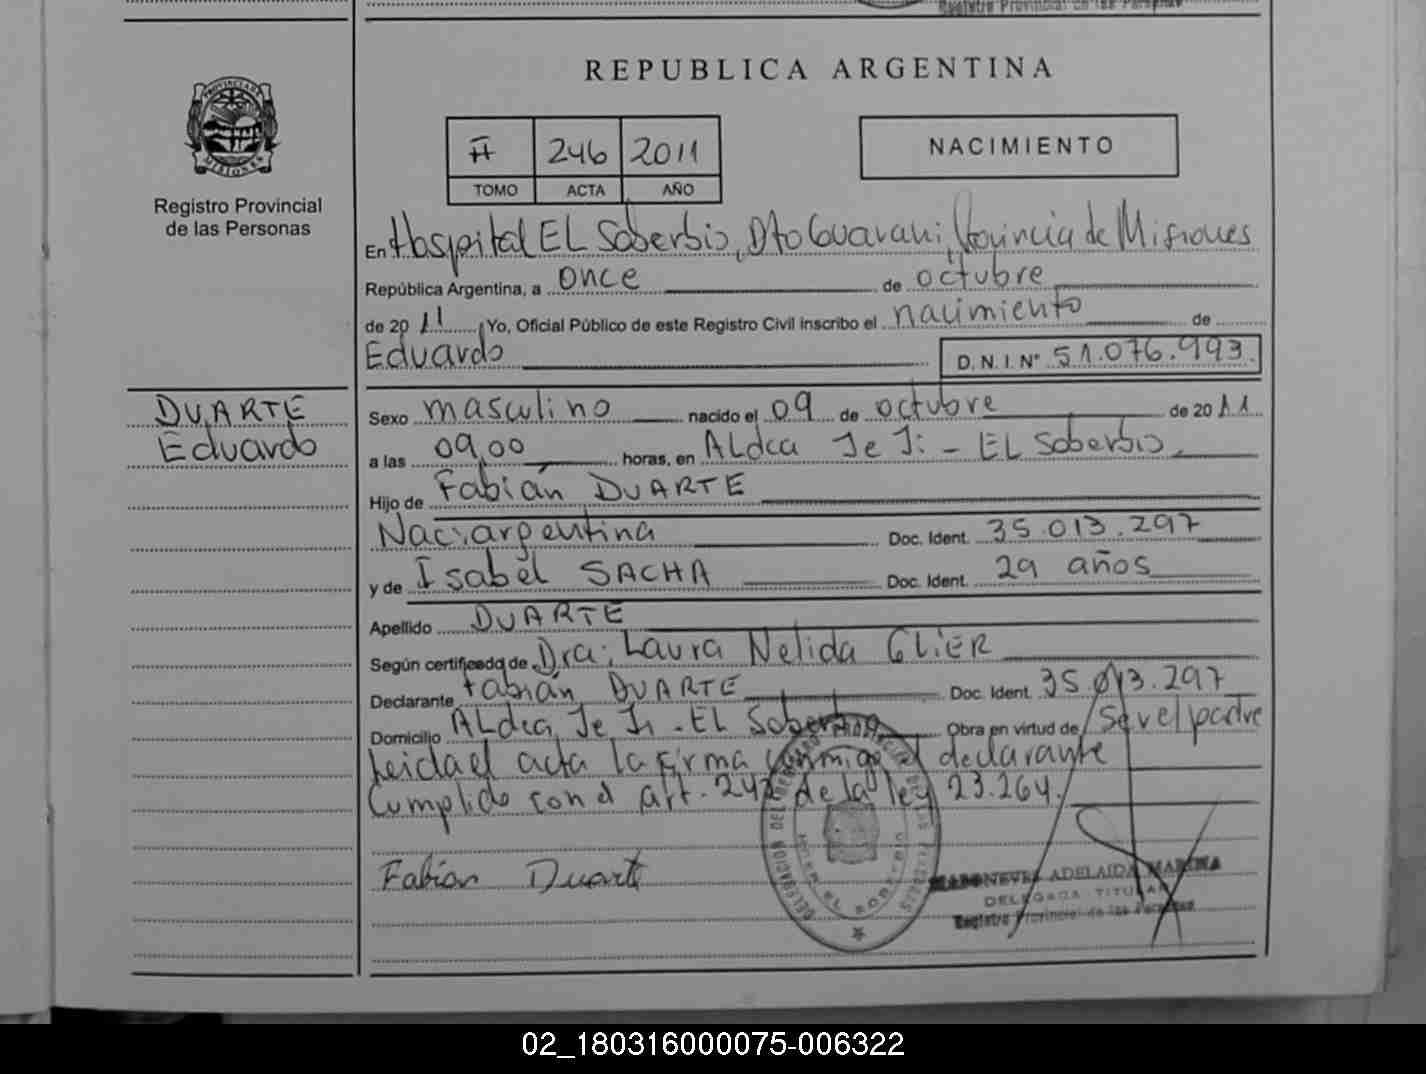 Registro Provincial de las Personas
REPUBLICA ARGENTINA
PROVINCIA DE
MISIONES
Registro Provincial
de las Personas
II 246 2011
TOMO ACTA AÑO
NACIMIENTO
En Hospital EL Soberbio, Dto Guarani, Provincia de Misiones
República Argentina, a once de octubre
de 2011 Yo, Oficial Público de este Registro Civil inscribo el nacimiento de
Eduardo D. N. I. Nº 51.076.993
DUARTE
Eduardo
Sexo masculino nacido el 09 de octubre de 2011
a las 09,00 horas, en ALdea Je Ji - EL Soberbio
Hijo de Fabián DUARTE
Nac: argentina Doc. Ident. 35.013.297
y de Isabel SACHA Doc. Ident. 29 años
Apellido DUARTE
Según certificado de Dra: Laura Nelida GLIER
Declarante Fabián DUARTE Doc. Ident. 35.013.297
Domicilio ALdea Je Ji - EL Soberbio Obra en virtud de Ser el padre
Leida el acta la firma conmigo el declarante
Cumplido con el art. 242 de la ley 23.264.
Fabian Duarte
ADELAIDA MARINA
DELEGADA TITULAR
Registro Provincial de las Personas
EL SOBERBIO
02_180316000075-006322